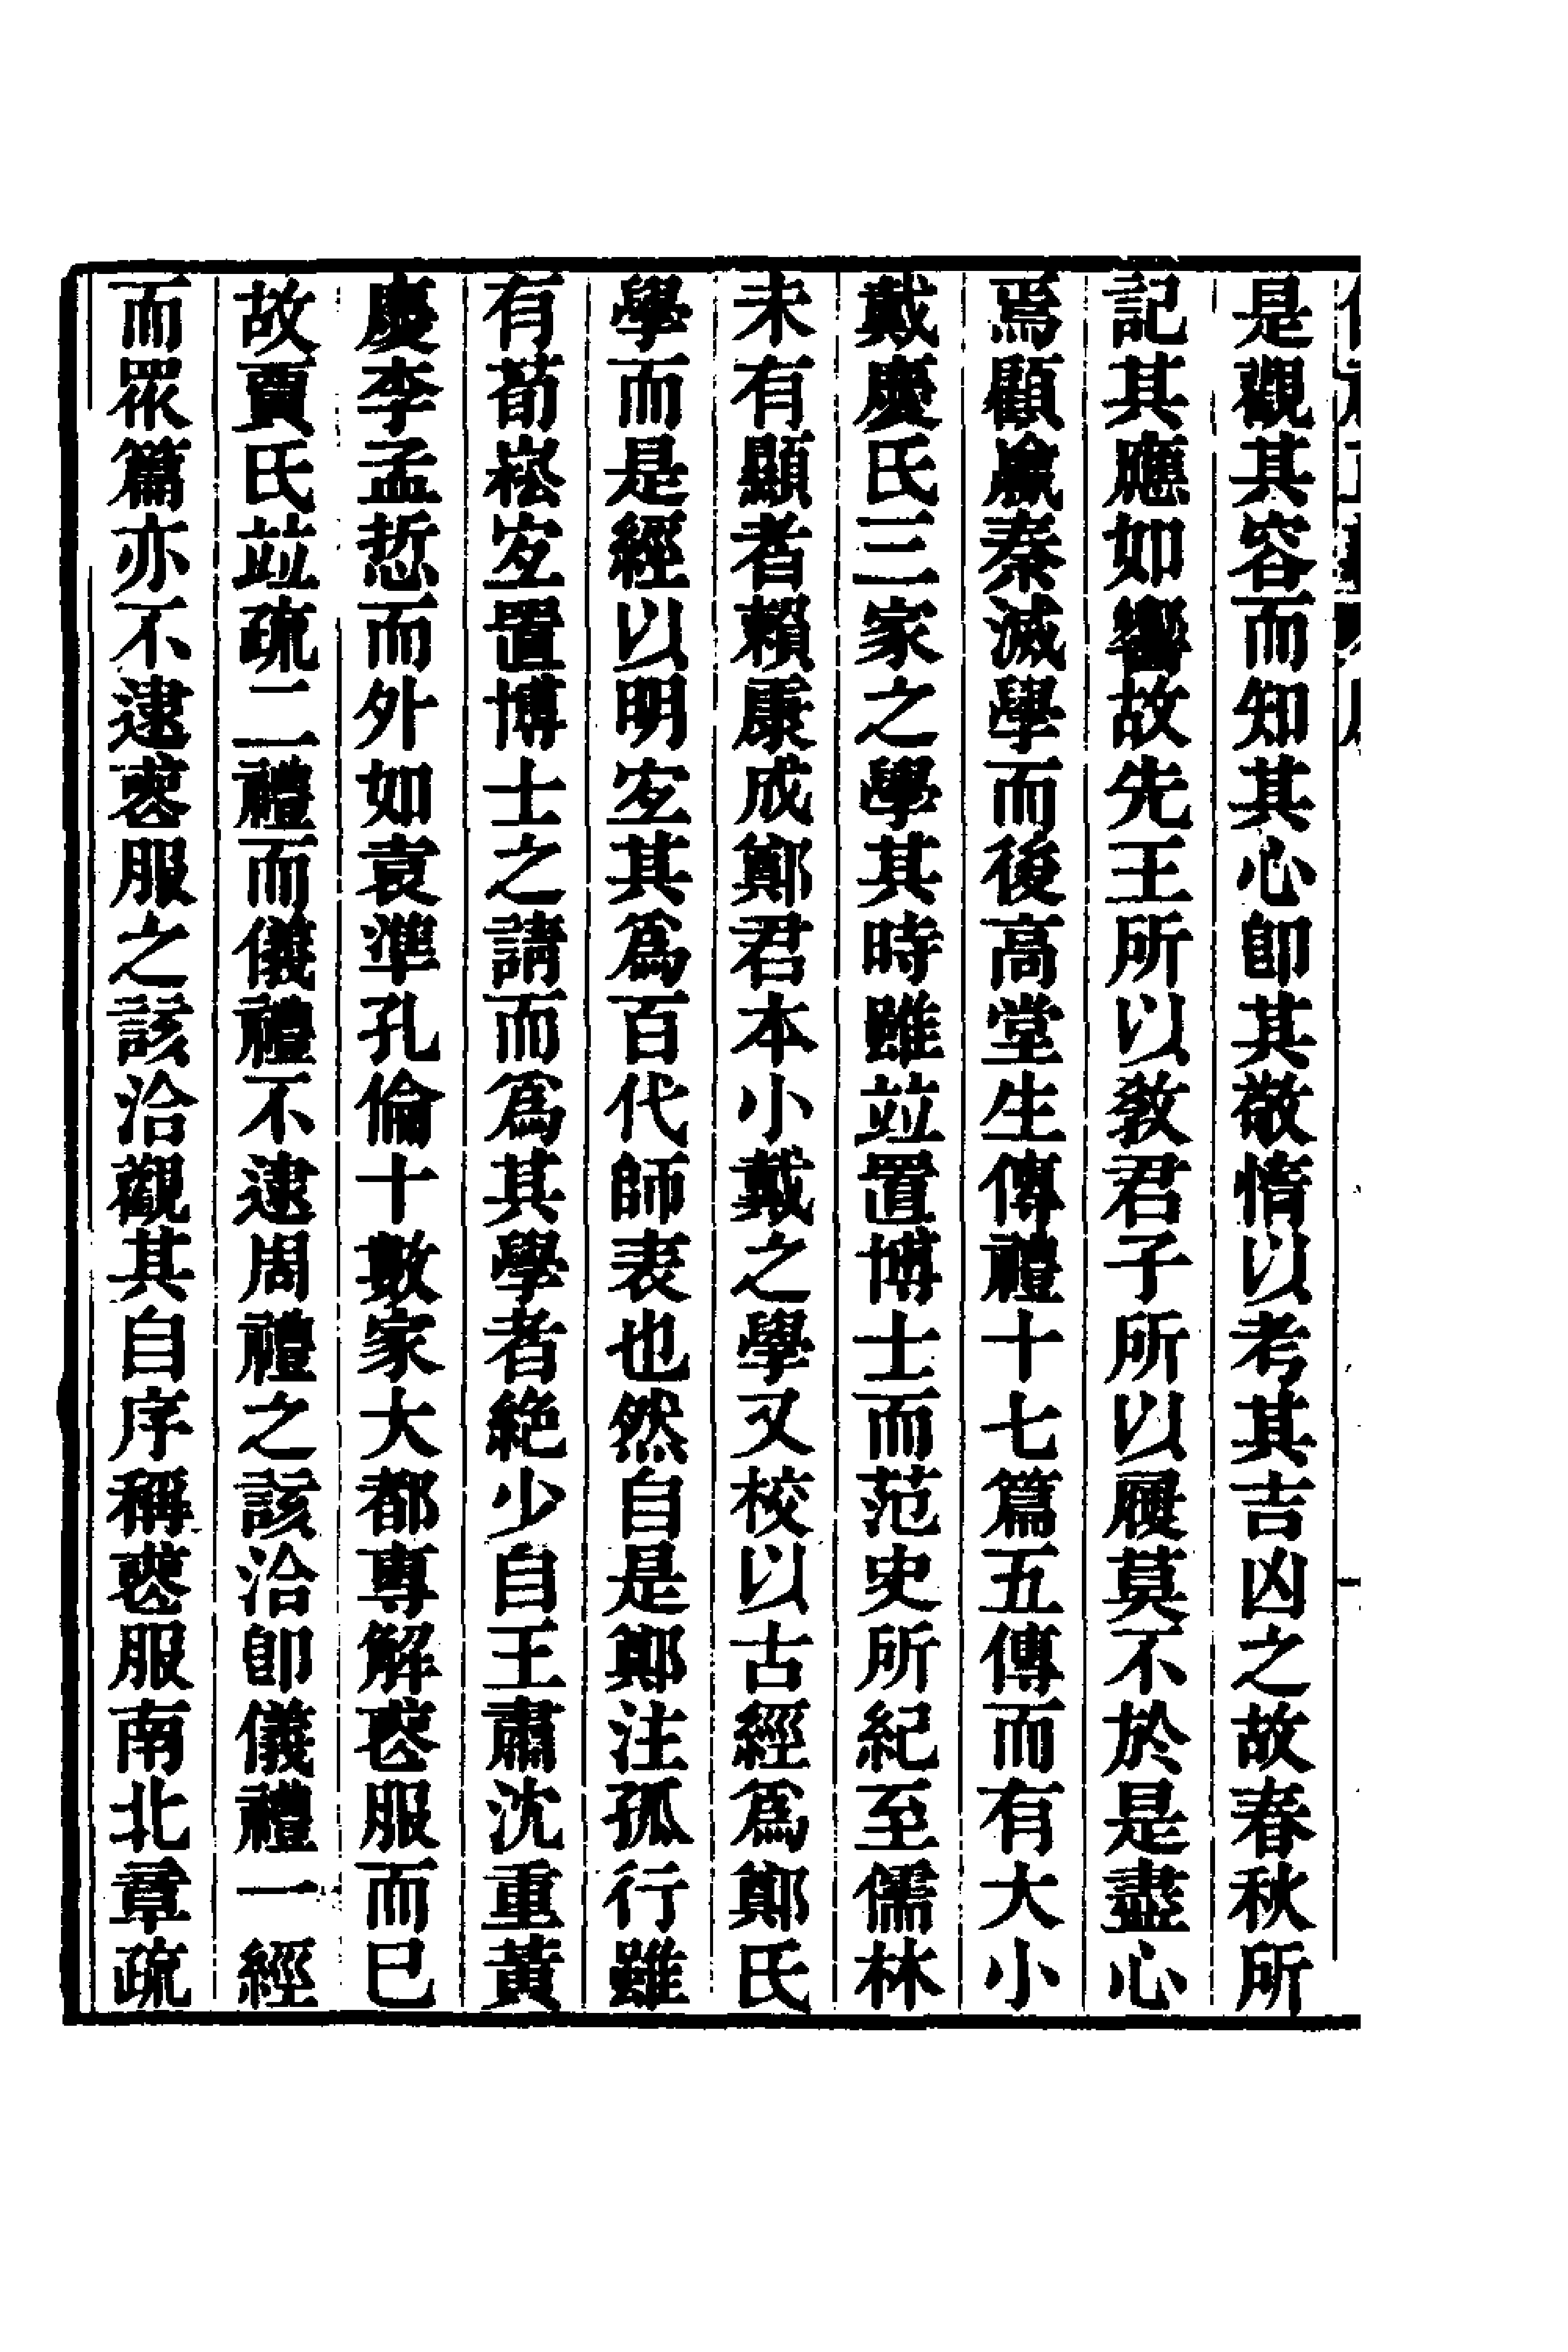 是觀其容而知其心卽其敬惰以考其吉凶之故春秋所
記其應如響故先王所以敎君子所以履莫不於是盡心
焉顧嬴秦滅學而後高堂生傳禮十七篇五傳而有大小
戴慶氏三家之學其時雖竝置博士而范史所紀至儒林
未有顯者賴康成鄭君本小戴之學又校以古經爲鄭氏
學而是經以明㝎其爲百代師表也然自是鄭注孤行雖
有荀崧㝎置博士之請而爲其學者絶少自王肅沈重黃
慶李孟悊而外如袁準孔倫十數家大都專解喪服而已
故賈氏竝疏二禮而儀禮不逮周禮之該洽卽儀禮一經
而眾篇亦不逮喪服之該洽觀其自序稱喪服南北章疏